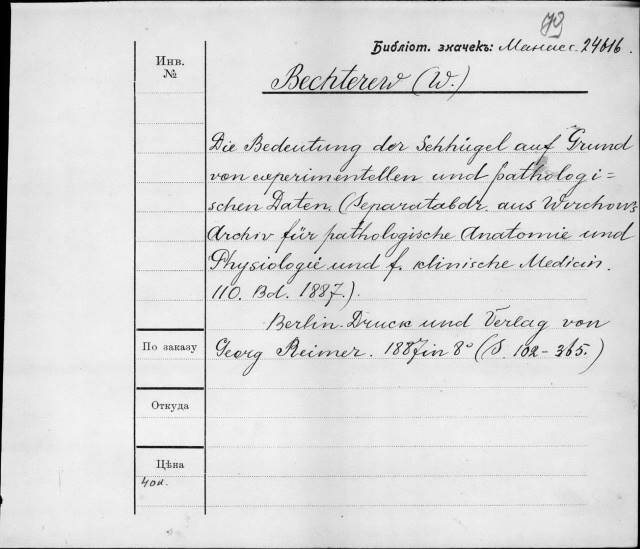 Библіот. значекъ: Манасс. 24616.
Инв.
№
Bechterew (W.)
Die Bedeutung der Sehhügel auf Grund
von experimentellen und pathologi=
schen Daten. (Separatabdr. aus Virchow's
Archiv für pathologische Anatomie und
Physiologie und f. klinische Medicin.
110. Bd. 1887.).
Berlin. Druck und Verlag von
По заказу
Georg Reimer. 1887 in 8° (S. 102-365.)
Откуда
Цѣна
40к.